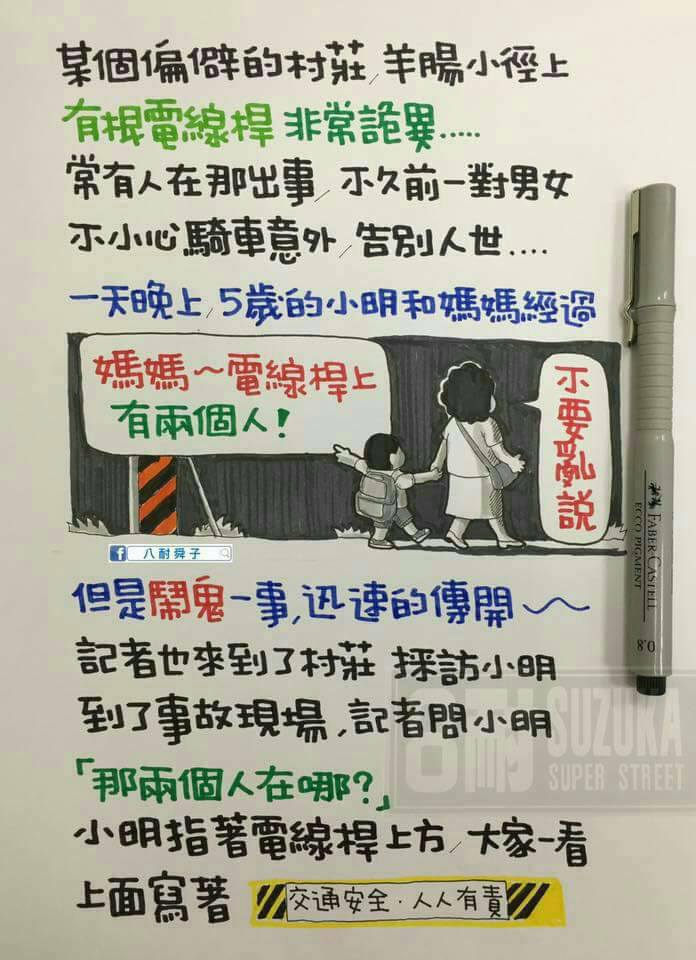 某個偏僻的村莊/羊腸小徑上
有根電線桿 非常詭異.....
常有人在那出事/不久前一對男女
不小心騎車意外/告別人世....
一天晚上/5歲的小明和媽媽經過
媽媽~電線桿上
有兩個人!
不要亂說
八耐舜子
但是鬧鬼一事,迅速的傳開~~
記者也來到了村莊 採訪小明
到了事故現場,記者問小明
「那兩個人在哪?」
小明指著電線桿上方/大家一看
上面寫著 交通安全·人人有責
FABER-CASTELL
ECCO PIGMENT
0.8
8耐 SUZUKA
SUPER STREET